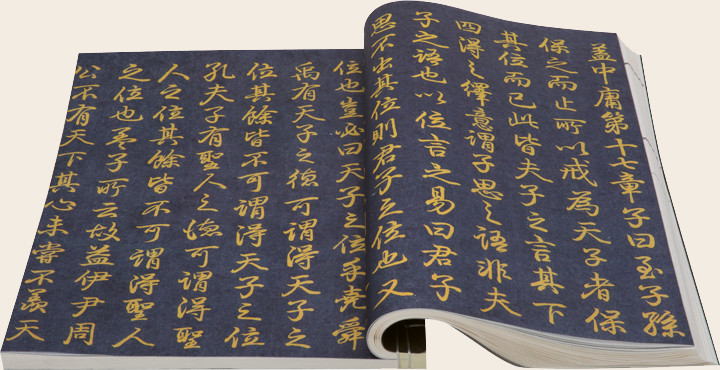 盖中庸第十七章子曰至子孫
保之而止所以戒為天子者保
其位而已此皆夫子之言其下
四得之繹意謂子思之語非夫
子之語也以位言之易曰君子
思不出其位則君子之位也又
位也豈必曰天子之位乎堯舜
禹有天子之德可謂得天子之
位其餘皆不可謂得天子之位
孔夫子有聖人之德可謂得聖
人之位其餘皆不可謂得聖人
之位也孟子所云故益伊尹周
公不有天下其心未嘗不羨天